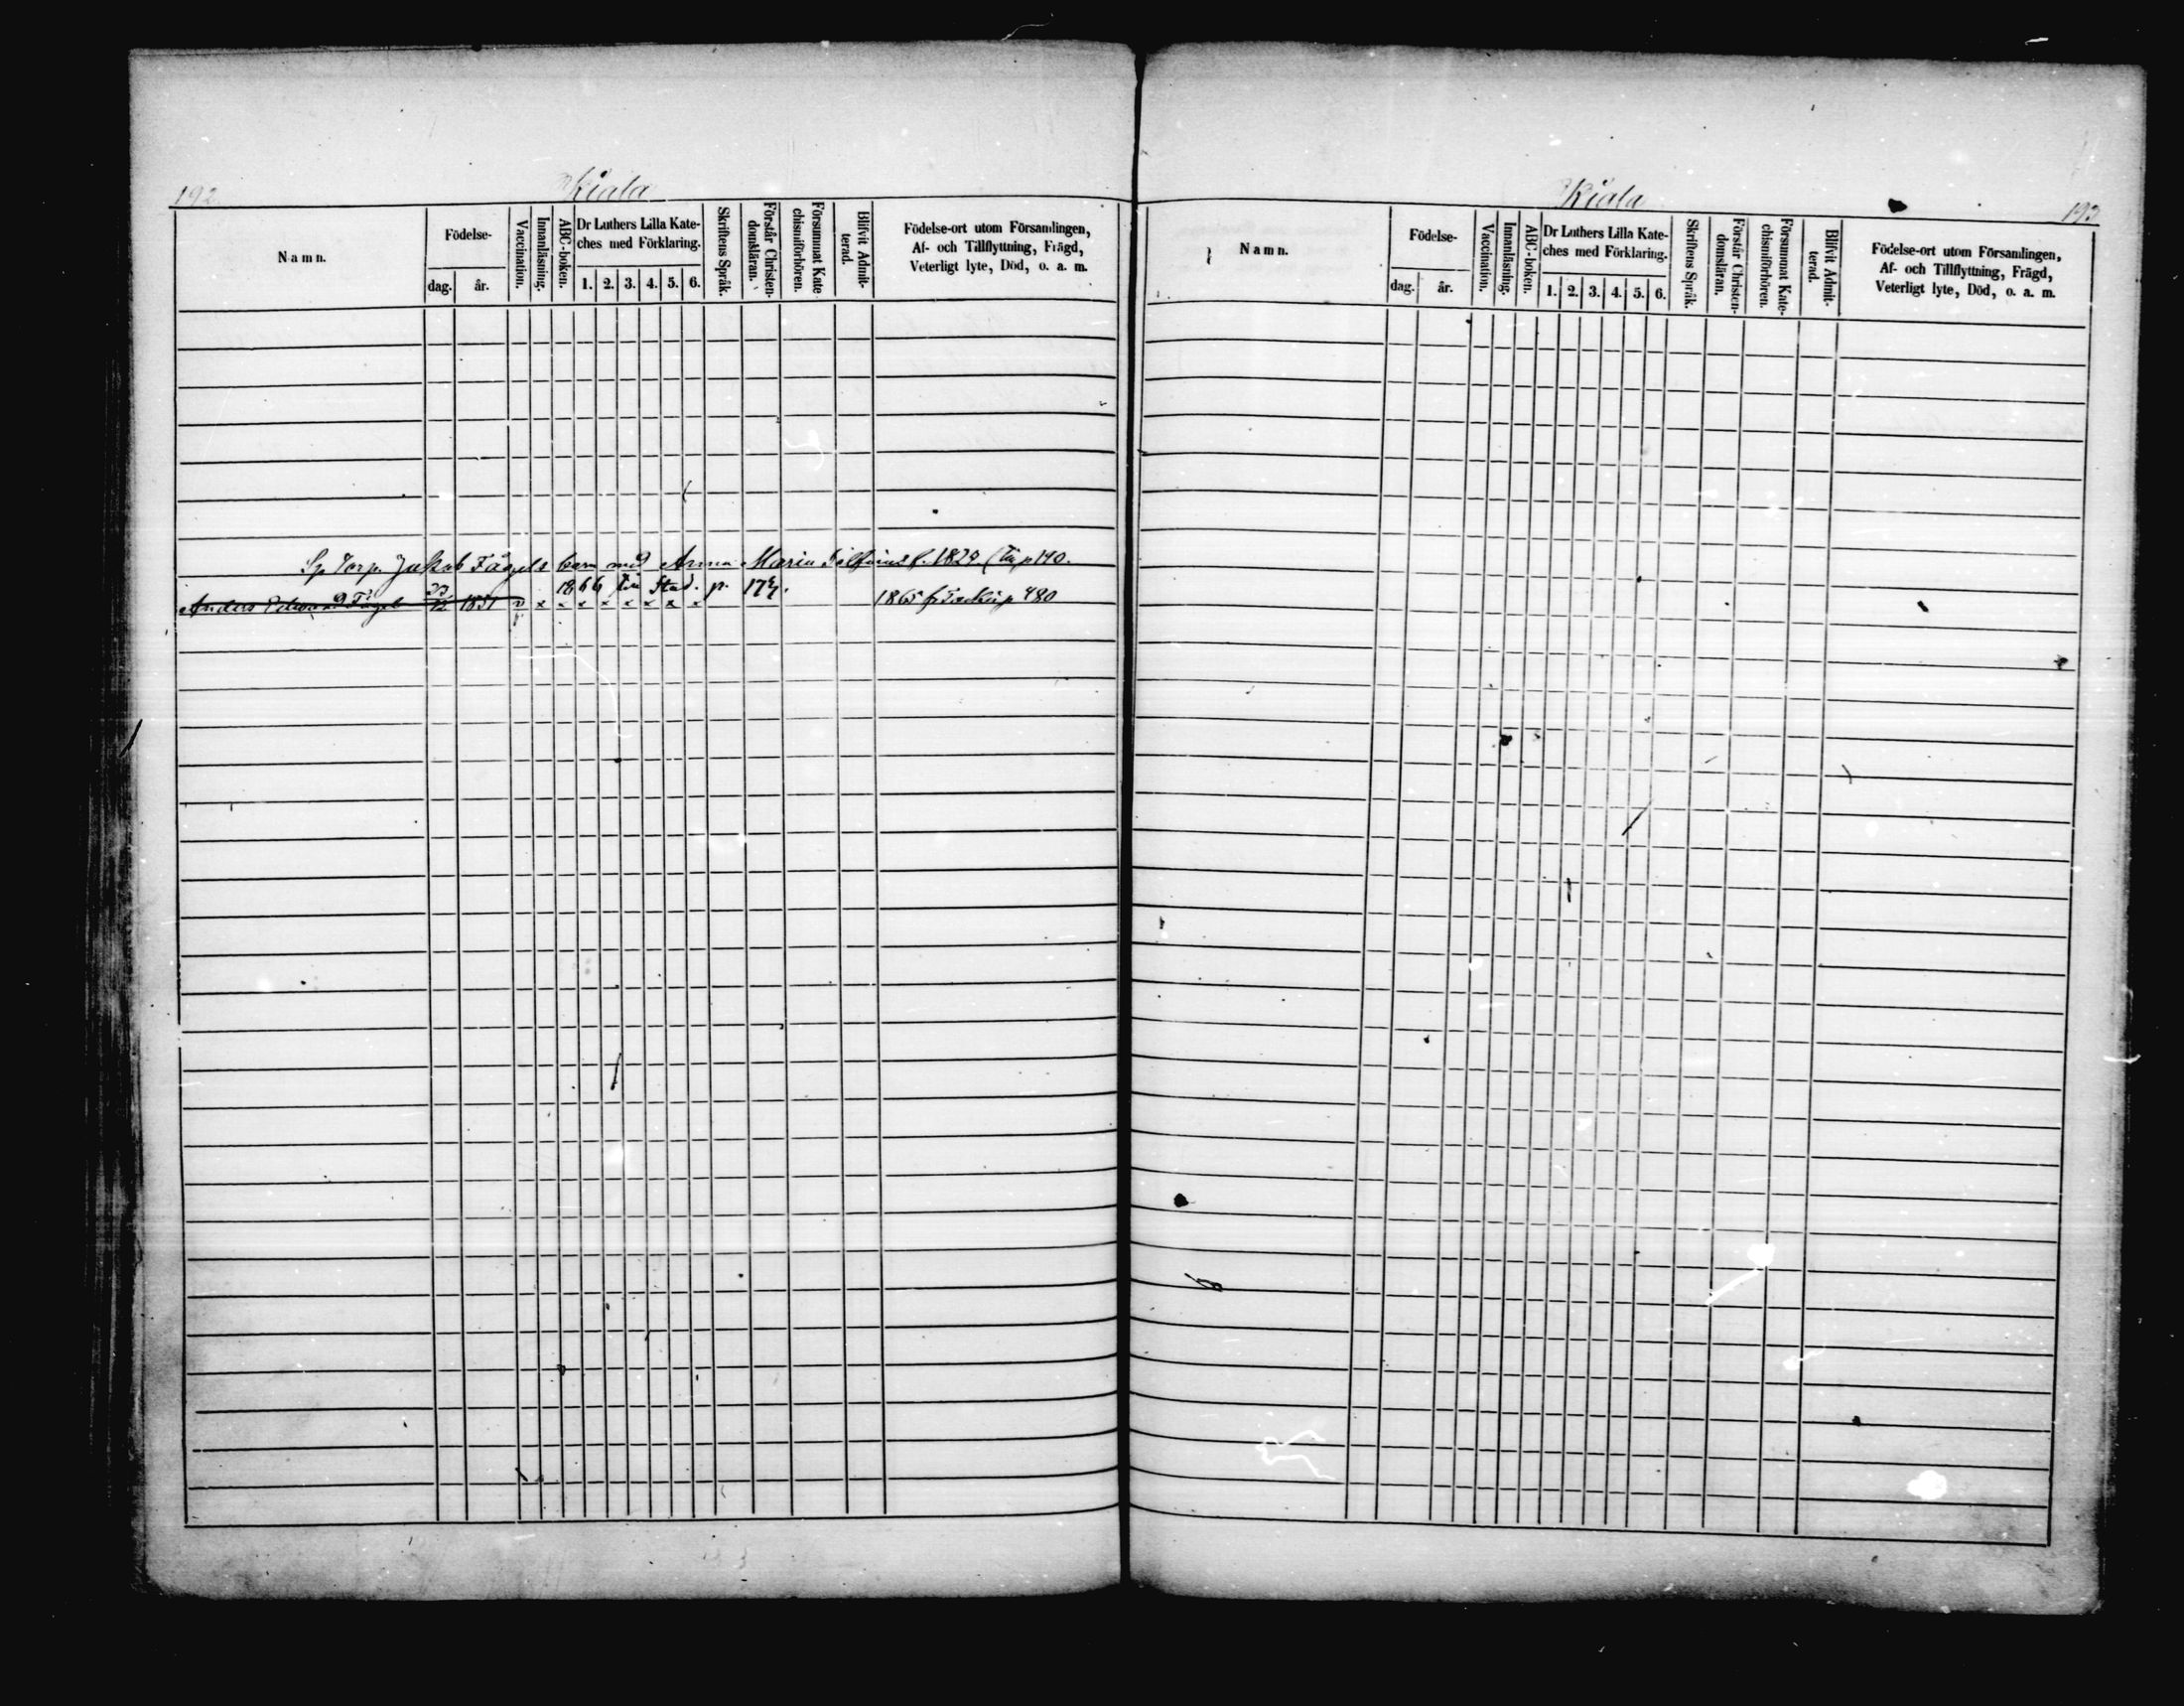 192
Kiala
Namn.
Födelse-
dag.
år.
Vaccination.
Innanläsning.
ABC-boken.
Dr Luthers Lilla Kate-
ches med Förklaring.
1. 2. 3. 4. 5. 6.
Skriftens Språk.
Förstår Christen-
domsläran.
Försummat Kate
chismiförhören.
Blifvit Admit-
terad.
Födelse-ort utom Församlingen,
Af- och Tillflyttning, Frägd,
Veterligt lyte, Död, o. a. m.
Sp. Torp. Jakob Fågels barn med Anna Maria f. 1829. p 190.
1866 Stad. p.
Anders Edward Fågel 1851 v x x x x x x x x 1865 p 480
Kiala
193
Namn.
Födelse-
dag.
år.
Vaccination.
Innanläsning.
ABC-boken.
Dr Luthers Lilla Kate-
ches med Förklaring.
1. 2. 3. 4. 5. 6.
Skriftens Språk.
Förstår Christen-
domsläran.
Försummat Kate-
chismiförhören.
Blifvit Admit-
terad.
Födelse-ort utom Församlingen,
Af- och Tillflyttning, Frägd,
Veterligt lyte, Död, o. a. m.